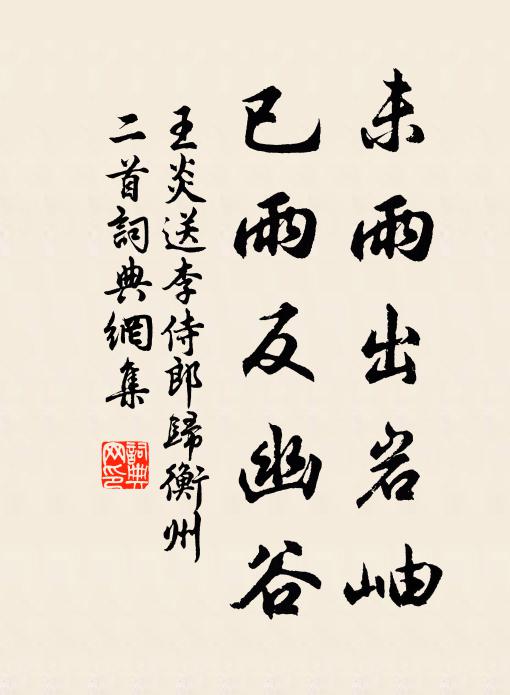 未雨出岩岫
已雨反幽谷
王炎送李侍郎歸衡州
二首詞典網集
詞典網印